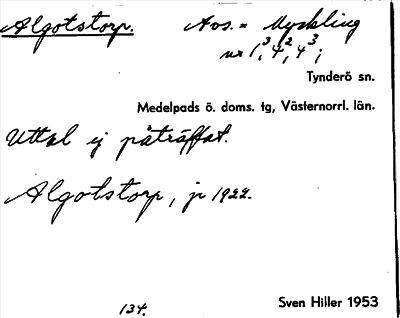 Algotstorp. Avs. = Myckling
nr 1³, 4², 4³;
Tynderö sn.
Medelpads ö. doms. tg, Västernorrl. län.
Uttal ej påträffat.
Algotstorp, jr 1922.
134.
Sven Hiller 1953